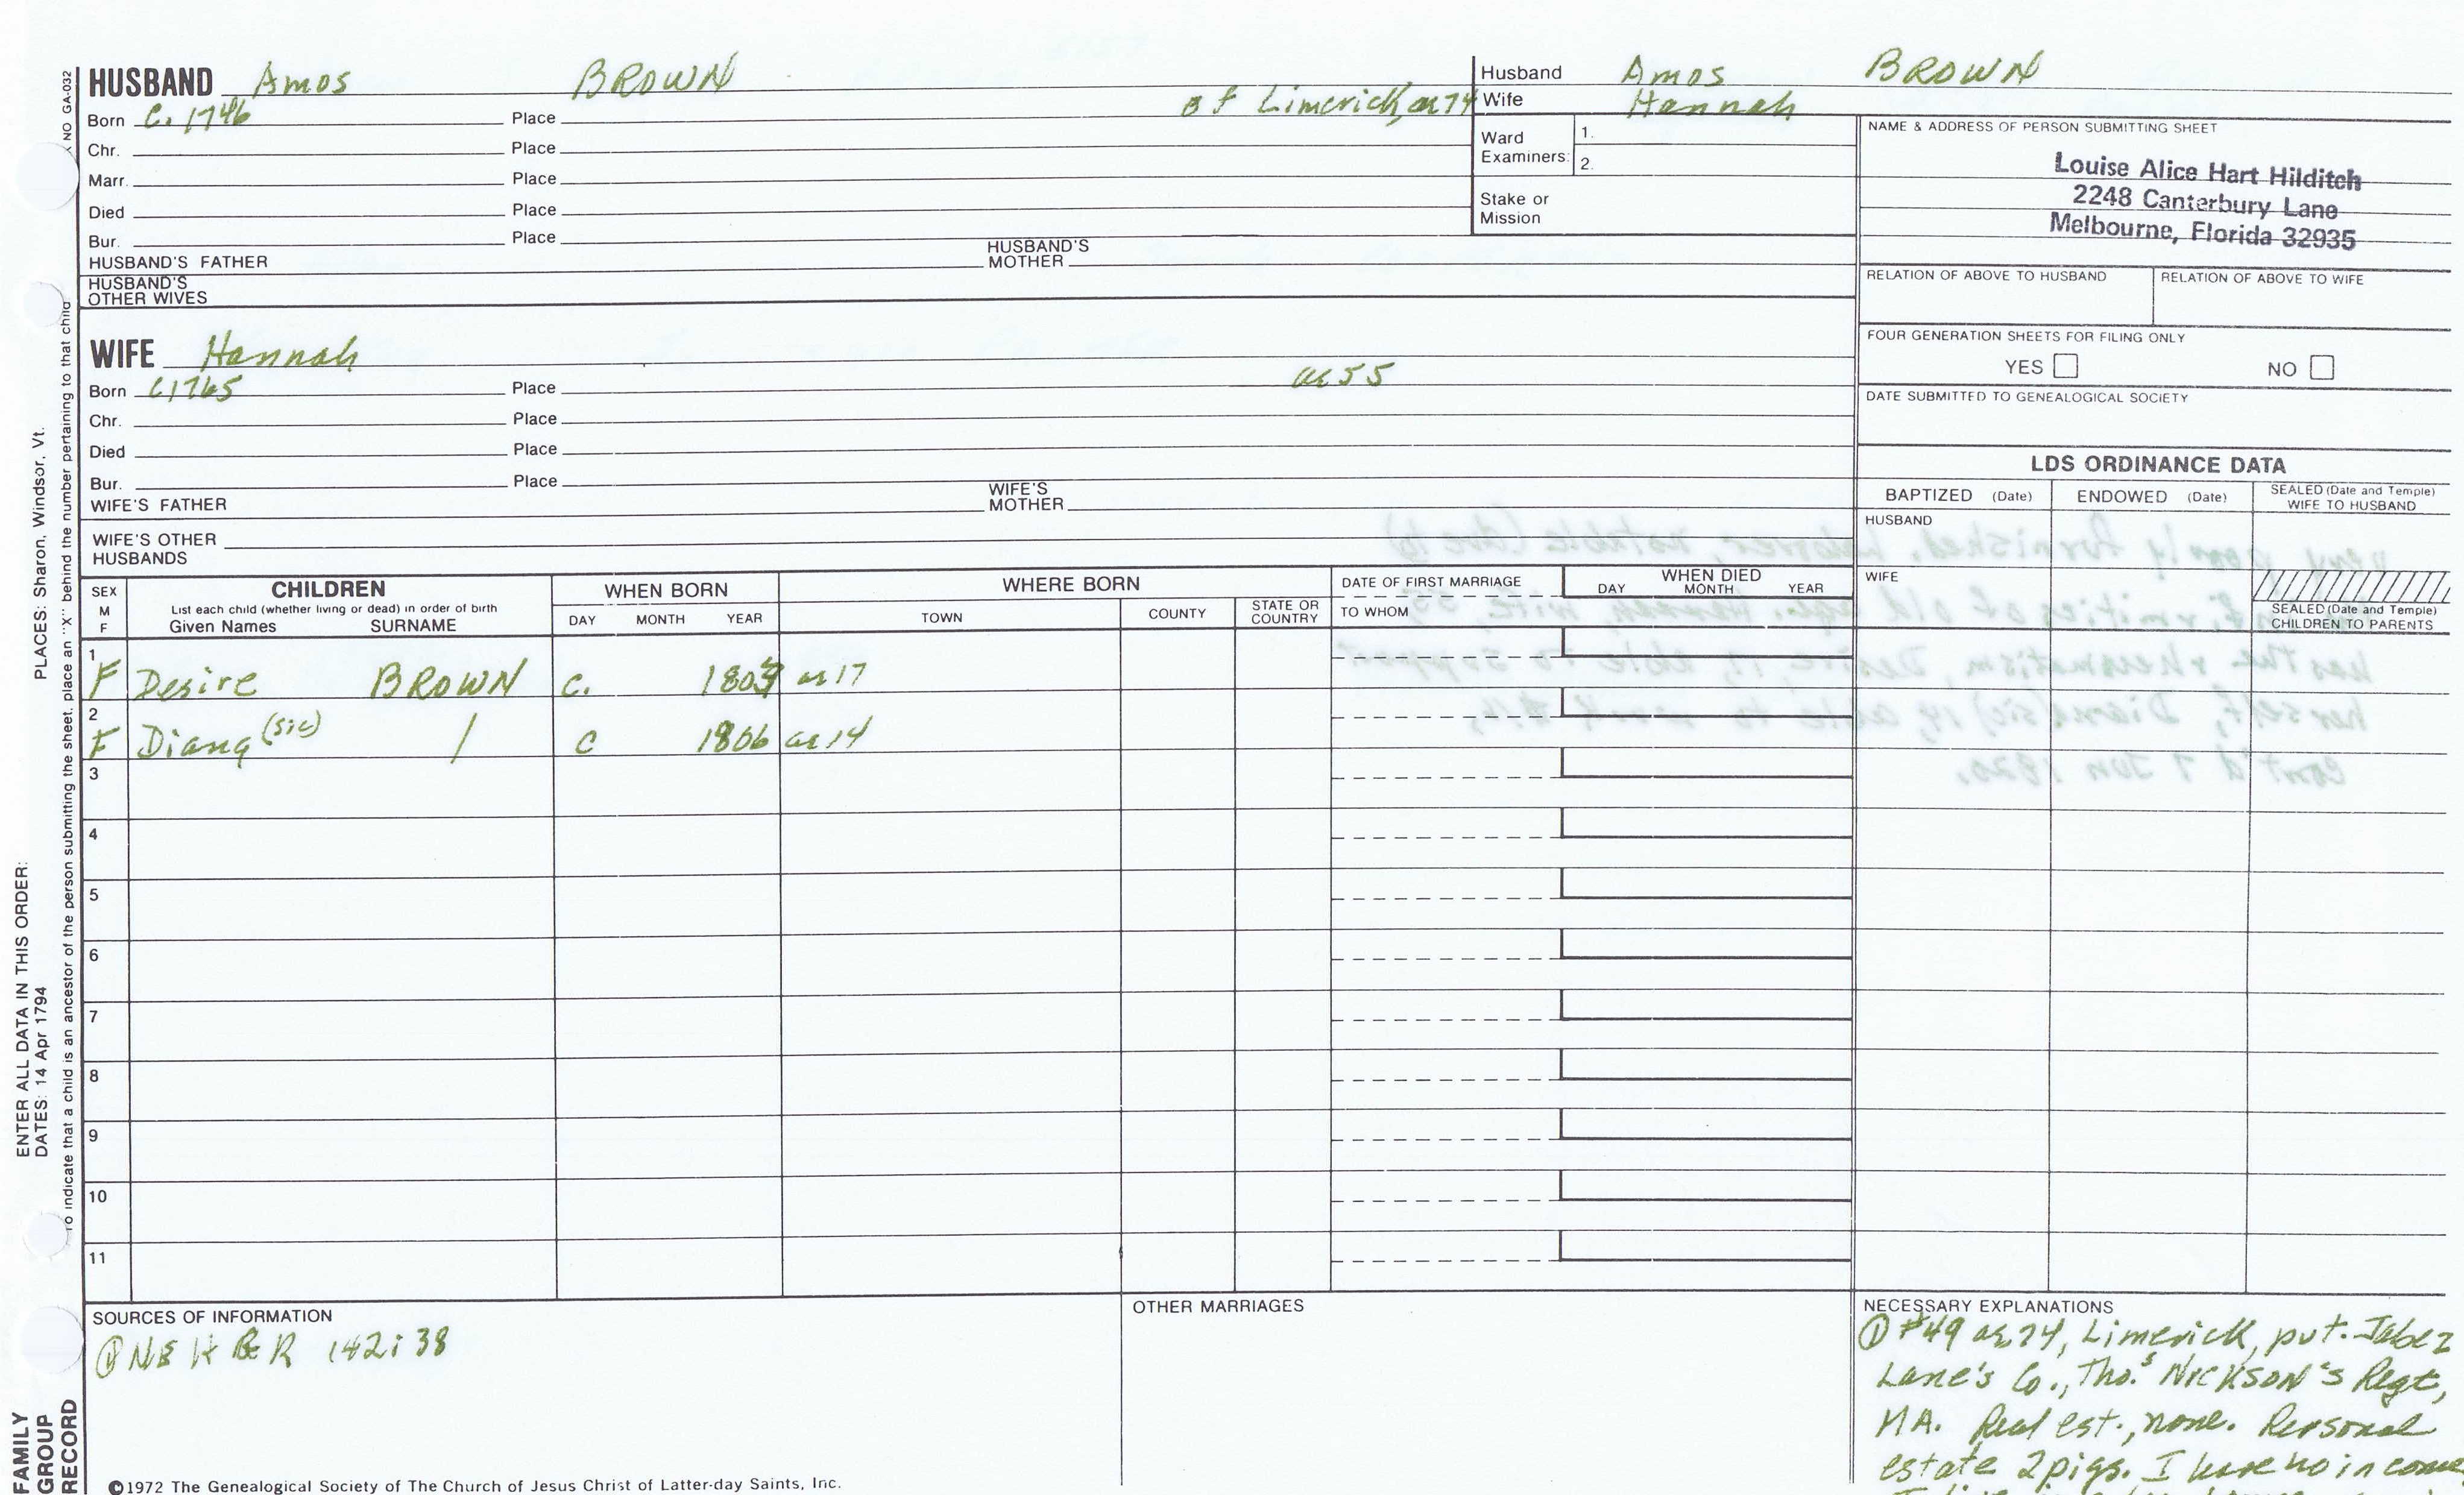 HUSBAND Amos BROWN
Born C. 1746 Place of Limerick, ae 74
Chr. Place
Marr. Place
Died Place
Bur. Place
HUSBAND'S FATHER HUSBAND'S MOTHER
HUSBAND'S OTHER WIVES
Husband Amos BROWN
Wife Hannah
Ward Examiners: 1.
2.
Stake or Mission
NAME & ADDRESS OF PERSON SUBMITTING SHEET
Louise Alice Hart Hilditch
2248 Canterbury Lane
Melbourne, Florida 32935
RELATION OF ABOVE TO HUSBAND RELATION OF ABOVE TO WIFE
FOUR GENERATION SHEETS FOR FILING ONLY
YES NO
DATE SUBMITTED TO GENEALOGICAL SOCIETY
WIFE Hannah
Born C1765 Place ae 55
Chr. Place
Died Place
Bur. Place
WIFE'S FATHER WIFE'S MOTHER
WIFE'S OTHER HUSBANDS
LDS ORDINANCE DATA
BAPTIZED (Date) ENDOWED (Date) SEALED (Date and Temple) WIFE TO HUSBAND
HUSBAND
WIFE
SEALED (Date and Temple) CHILDREN TO PARENTS
very poorly furnished.
has the rheumatism, Desire, 17, able to support
herself, Diana (sic) 14, able to work
cont'd 7 Jun 1820.
SEX M F
CHILDREN
List each child (whether living or dead) in order of birth
Given Names SURNAME
WHEN BORN
DAY MONTH YEAR
WHERE BORN
TOWN COUNTY STATE OR COUNTRY
DATE OF FIRST MARRIAGE
TO WHOM
WHEN DIED
DAY MONTH YEAR
1 F Desire BROWN C. 1803 ae 17
2 F Diana (sic) / C 1806 ae 14
3
4
5
6
7
8
9
10
11
SOURCES OF INFORMATION
① NEH&GR 142:38
OTHER MARRIAGES
NECESSARY EXPLANATIONS
① #49 ae 74, Limerick, pvt. Jabez
Lane's Co., Thos. NICKSON's Regt,
MA. Real est., none. Personal
estate 2 pigs. I have no income,
©1972 The Genealogical Society of The Church of Jesus Christ of Latter-day Saints, Inc.
NO GA-032
To indicate that a child is an ancestor of the person submitting the sheet, place an "X" behind the number pertaining to that child
ENTER ALL DATA IN THIS ORDER:
DATES: 14 Apr 1794 PLACES: Sharon, Windsor, Vt.
FAMILY
GROUP
RECORD